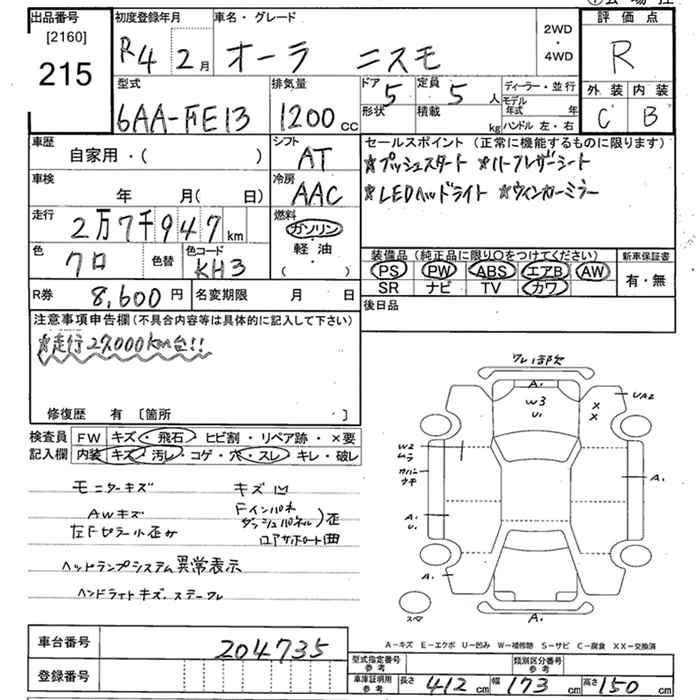 出品番号
[2160]
215
初度登録年月
R4 2月
車名・グレード
オーラ ニスモ
2WD
・
4WD
評価点
R
外装 内装
C B
型式
6AA-FE13
排気量
1200 cc
ドア
5
形状
定員
5人
積載
kg
ディーラー・並行
モデル年式 年
ハンドル 左・右
車歴
自家用・( )
シフト
AT
セールスポイント(正常に機能するものに限ります)
★プッシュスタート ★ハーフレザーシート
★LEDヘッドライト ★ウィンカーミラー
車検
年 月( 日)
冷房
AAC
走行
2万7千947km
燃料
ガソリン
軽油
( )
色
クロ
色替
色コード
KH3
装備品(純正品に限り○をつけてください)
PS PW ABS エアB AW
SR ナビ TV カワ
新車保証書
有・無
R券
8,600円
名変期限 月 日
後日品
注意事項申告欄(不具合内容等は具体的に記入して下さい)
★走行27,000km台!!
修復歴 有 〔箇所 〕
検査員記入欄
FW キズ・飛石・ヒビ割・リペア跡・×要
内装 キズ・汚レ・コゲ・穴・スレ・キレ・破レ
モニターキズ キズ凹
AWキズ Fインパネ
ダッシュパネル)歪
左Fピラー小歪み コアサポート曲
ヘッドランプシステム異常表示
ハンドライトキズ、ステーワレ
A.
W3
U.
X
X
UA2
W2
ムラ
A.
A.
U.
A.
スペア
A.
A-キズ E-エクボ U-凹み W-補修跡 S-サビ C-腐食 XX-交換済
車台番号
204735
登録番号
型式指定番号
参考
類別区分番号
参考
車庫証明用
参考
長さ 412cm 幅 173cm 高さ 150cm